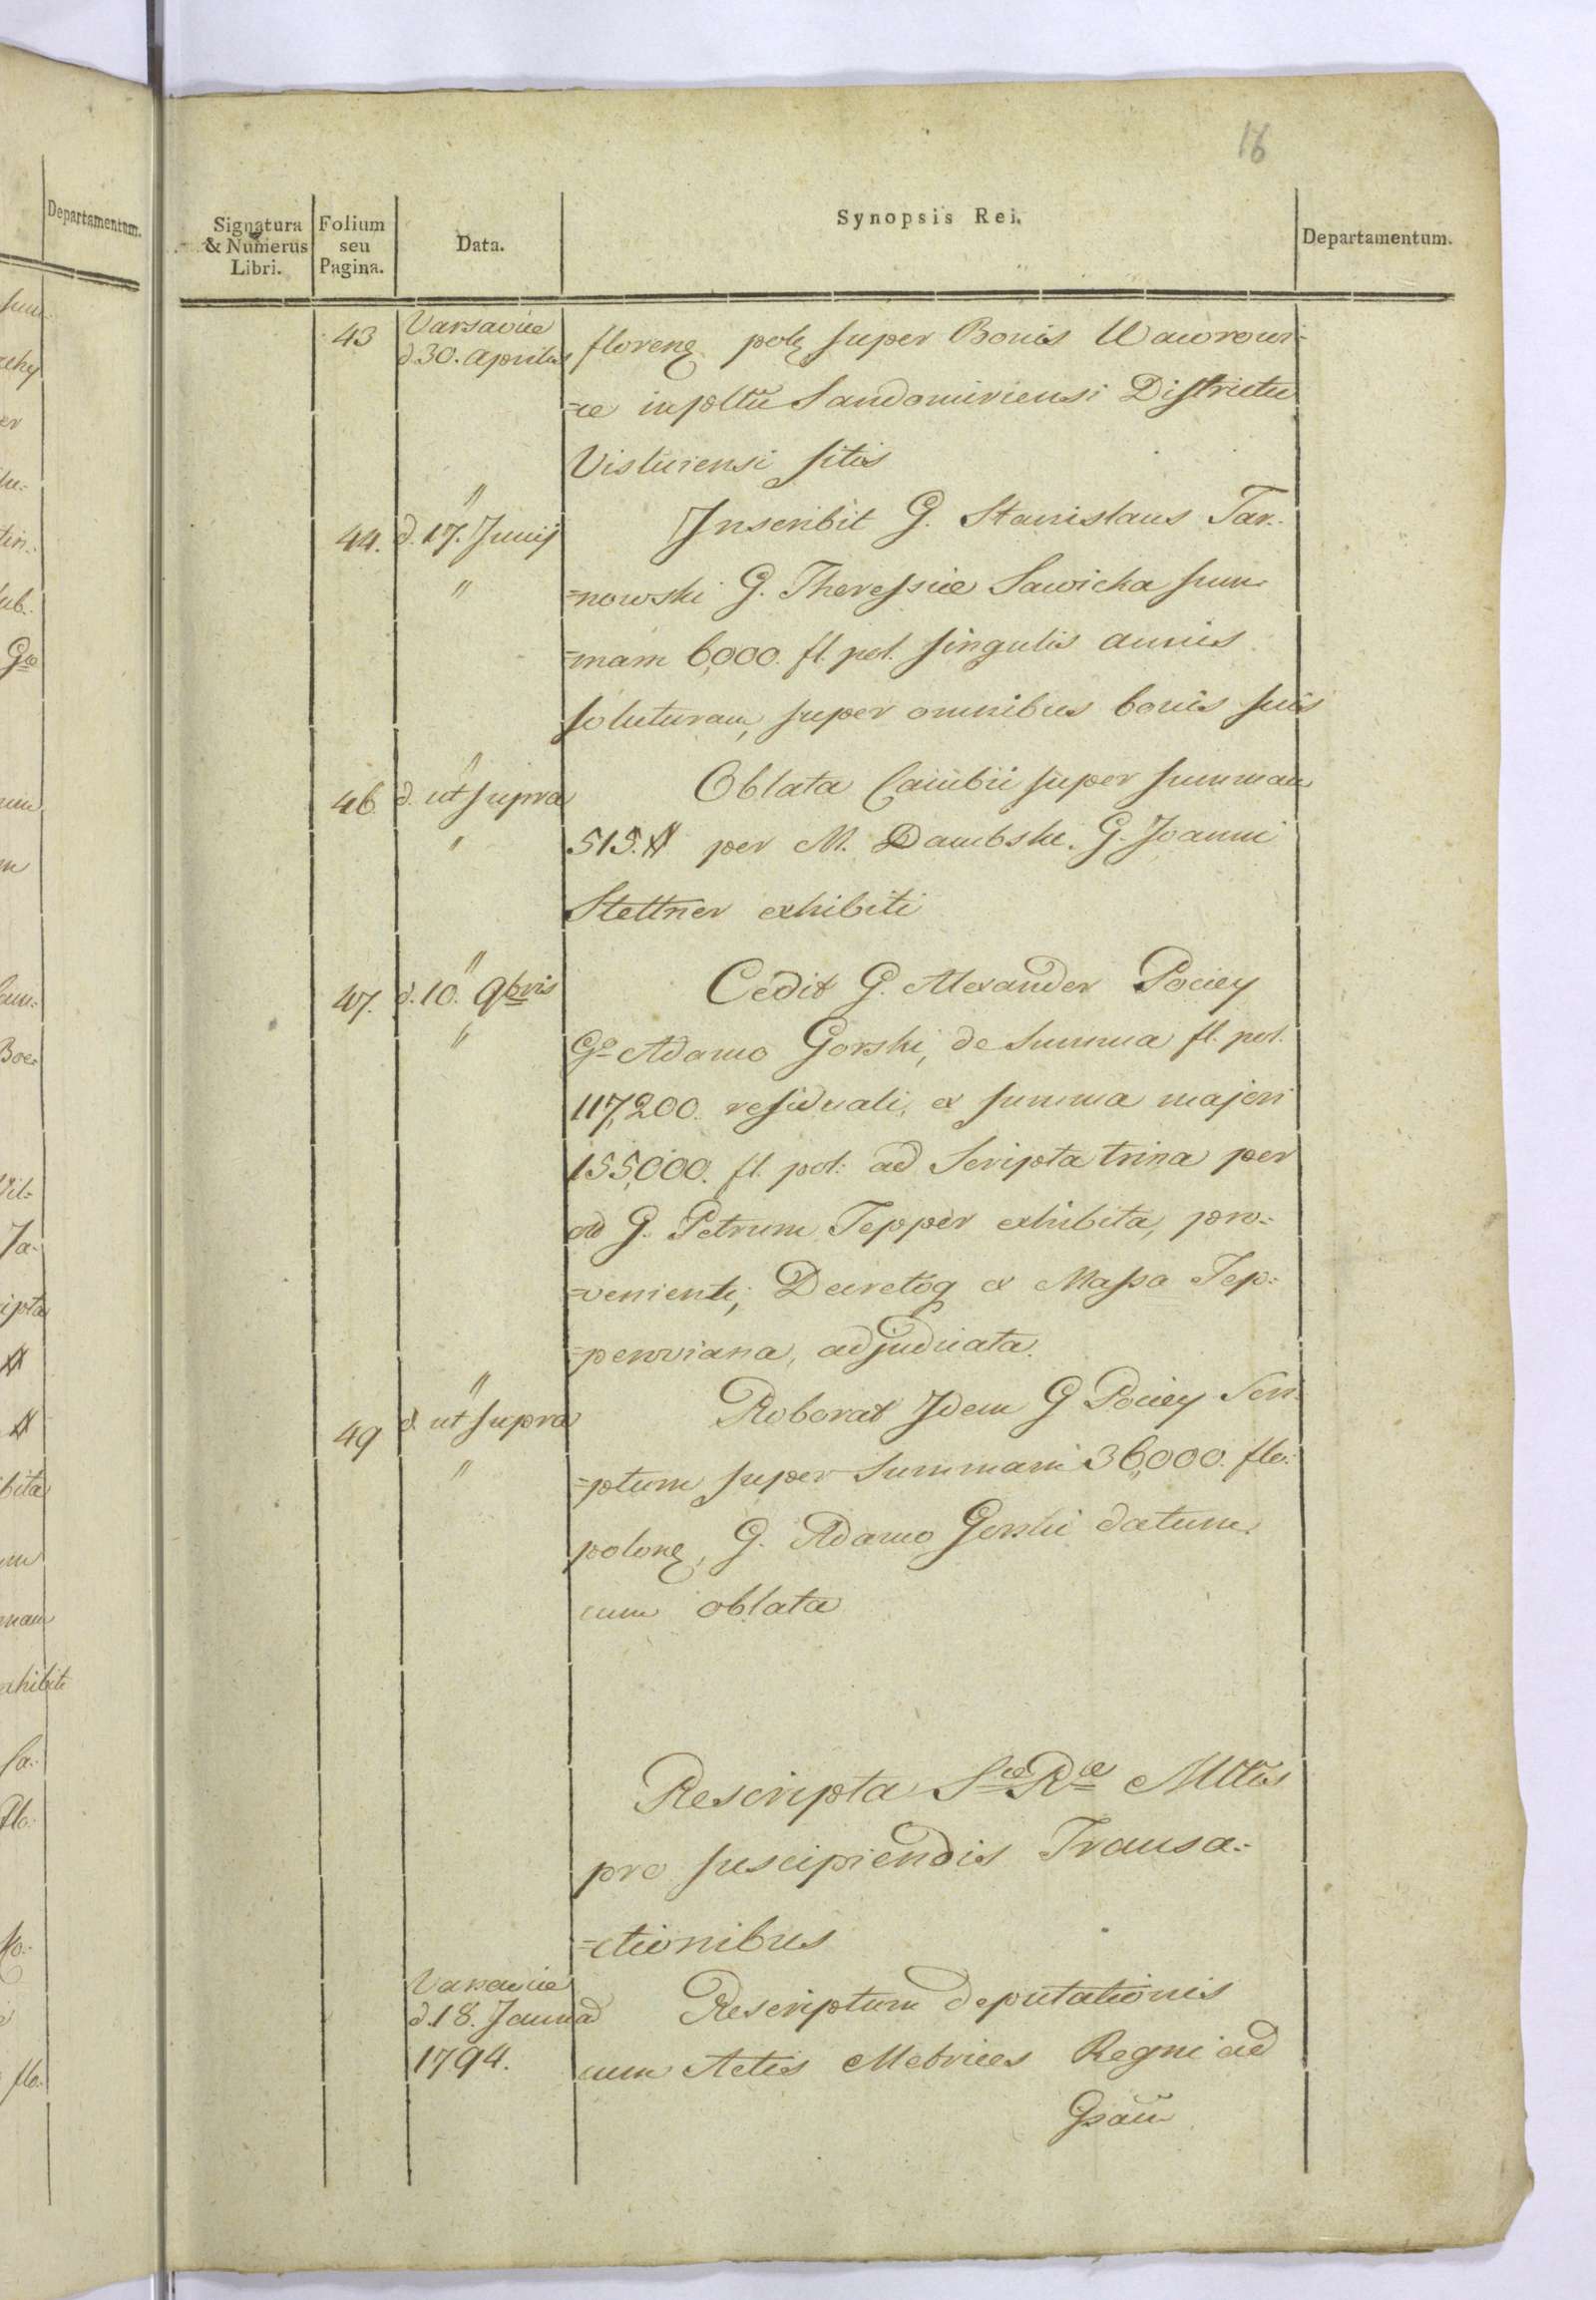 16
Signatura & Numerus Libri.
Folium seu Pagina.
Data.
Synopsis Rei.
Departamentum.
43 Varsaviæ
d. 30. Aprilis florenq polq super Bonis Wawrowi-
=ce in pltũ Sandomiriensi Districtu
Visliciensi sitis
"
44. d. 17. Junij Inscribit G. Stanislaus Tar-
" =nowski G. Theressiæ Sawicka sum-
=mam 6,000. fl. pol. singulis annis
soluturam, super omnibus bonis suis
"
46 d. ut supra Oblata Cambii super summam
" 515. # per M. Dambski G. Joanni
Stettner exhibiti
"
47. d. 10. 9bris Cedit G. Alexander Pociey
" Go Adamo Gorski, de summa fl. pol.
117,200. residuali, ex summa majori
155,000. fl. pol: ad Scripta trina per
ad G. Petrum Tepper exhibita, pro-
=veniente, Decretoq ex Massa Tep-
=peroviana, adjudicata.
"
49 d. ut supra Roborat Idem G Pociey Scri-
" =ptum super Summam 36,000. flo:
polonq, G. Adamo Gorski datum
cum oblata
Rescripta Sæ Ræ Mttis
pro suscipiendis Transa-
=ctionibus
Varsaviæ
d. 18. Januar Rescriptum deputationis
1794. cum Actis Metrices Regni ad